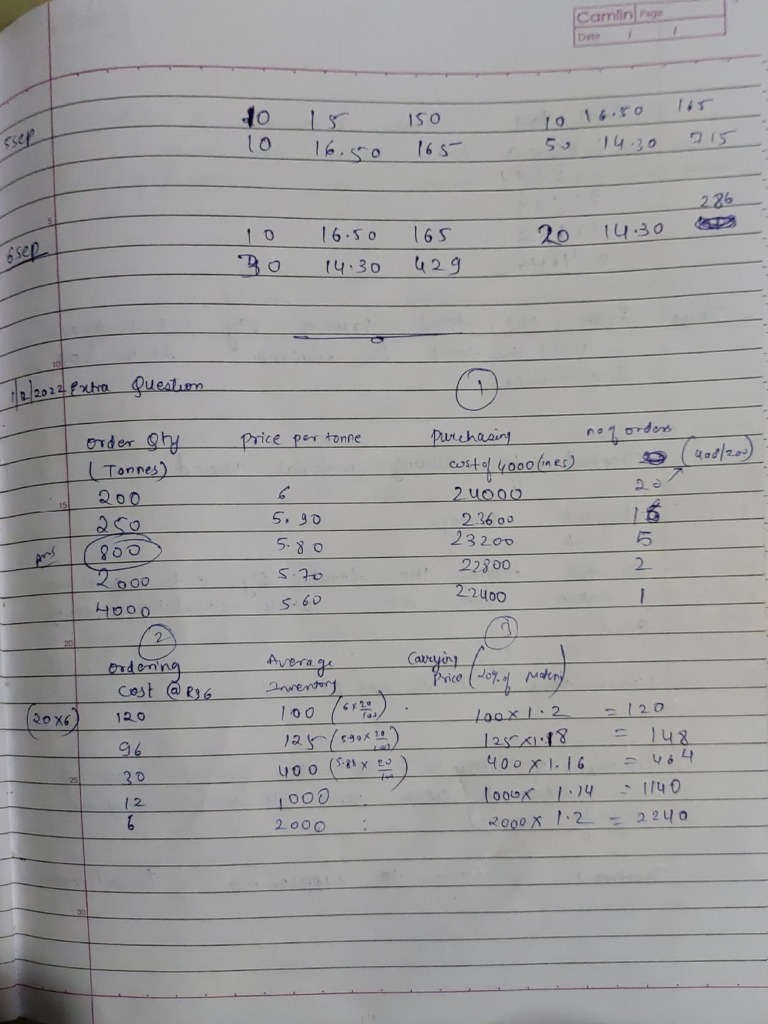 Camlin Page
Date / /
10 15 150 10 16.50 165
5sep 10 16.50 165 50 14.30 715
286
6sep 10 16.50 165 20 14.30
30 14.30 429
1/2/2022 Extra Question 1
order Qty price per tonne purchasing no of orders
(Tonnes) cost of 4000 (400/200)
200 6 24000 20
250 5.90 23600 16
Ans 800 5.80 23200 5
2000 5.70 22800 2
4000 5.60 22400 1
2 3
ordering Average Carrying
cost @ RS6 Inventory Price (20% of
(20x6) 120 100 (6x20/100) 100x1.2 = 120
96 125 (5.90x20/100) 125x1.18 = 148
30 400 (5.80x20/100) 400x1.16 = 464
12 1000 1000x 1.14 = 1140
6 2000 : 2000x 1.2 = 2240